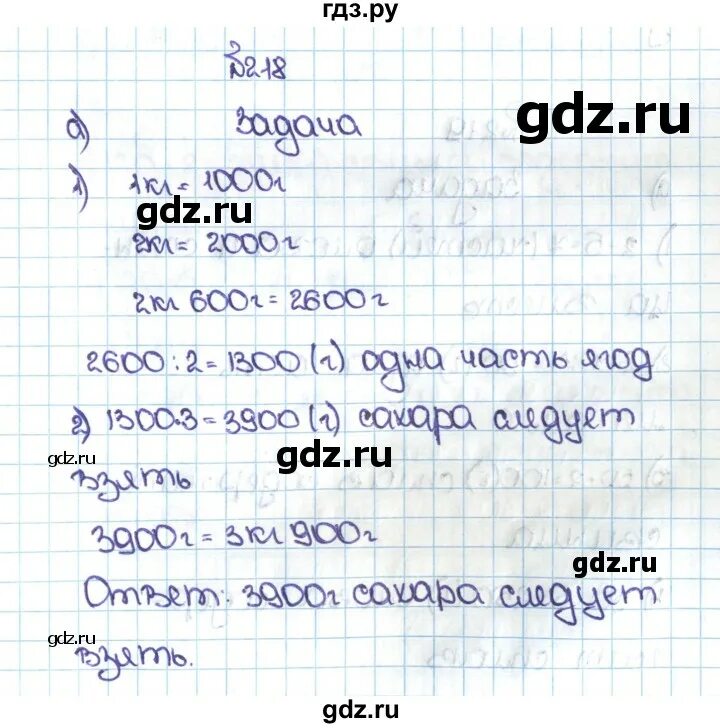 гдз.ру
№218
gdz.ru
а) Задача
1) 1кг = 1000г
gdz.ru
2кг = 2000 г
2кг 600г = 2600г
2600 : 2 = 1300 (г) одна часть ягод
2) 1300·3 = 3900 (г) сахара следует
gdz.ru
gdz.ru
взять
3900г = 3кг 900г
gdz.ru
Ответ: 3900г сахара следует
gdz.ru
взять.
gdz.ru